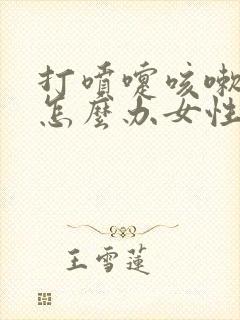 打噴嚏咳嗽
怎麼办女性
王雪蓮